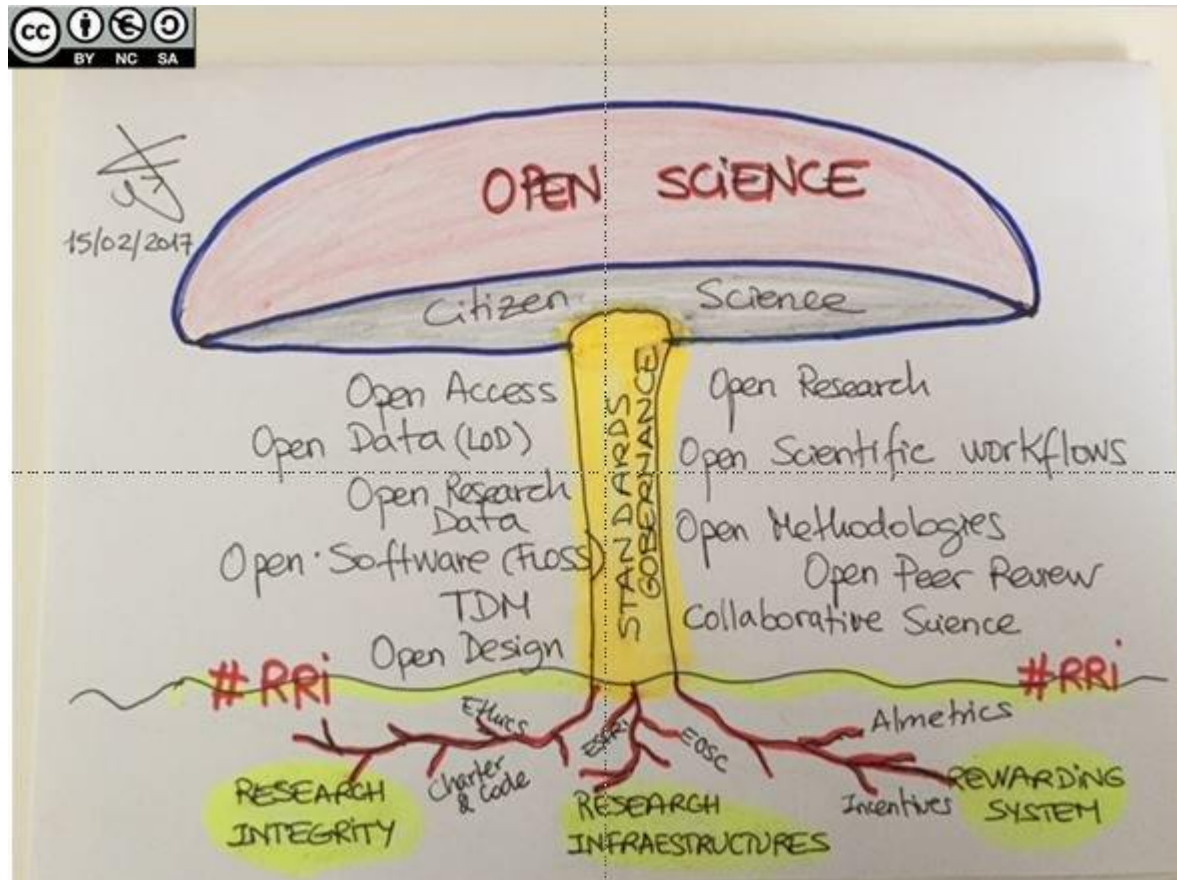 cc
BY NC SA
15/02/2017
OPEN SCiENCE
Citizen Science
Open Access
Open Data (LOD)
Open Research
Data
Open Software (FLOSS)
TDM
Open Design
STANDARDS
GOBERNANCE
Open Research
Open Scientific workflows
Open Methodologies
Open Peer Review
Collaborative Science
#RRi
#RRi
Ethics
Charter
& Code
ESFRi
EOSC
Almetrics
Incentives
RESEARCH
INTEGRITY
RESEARCH
INFRAESTRUCTURES
REWARDING
SYSTEM